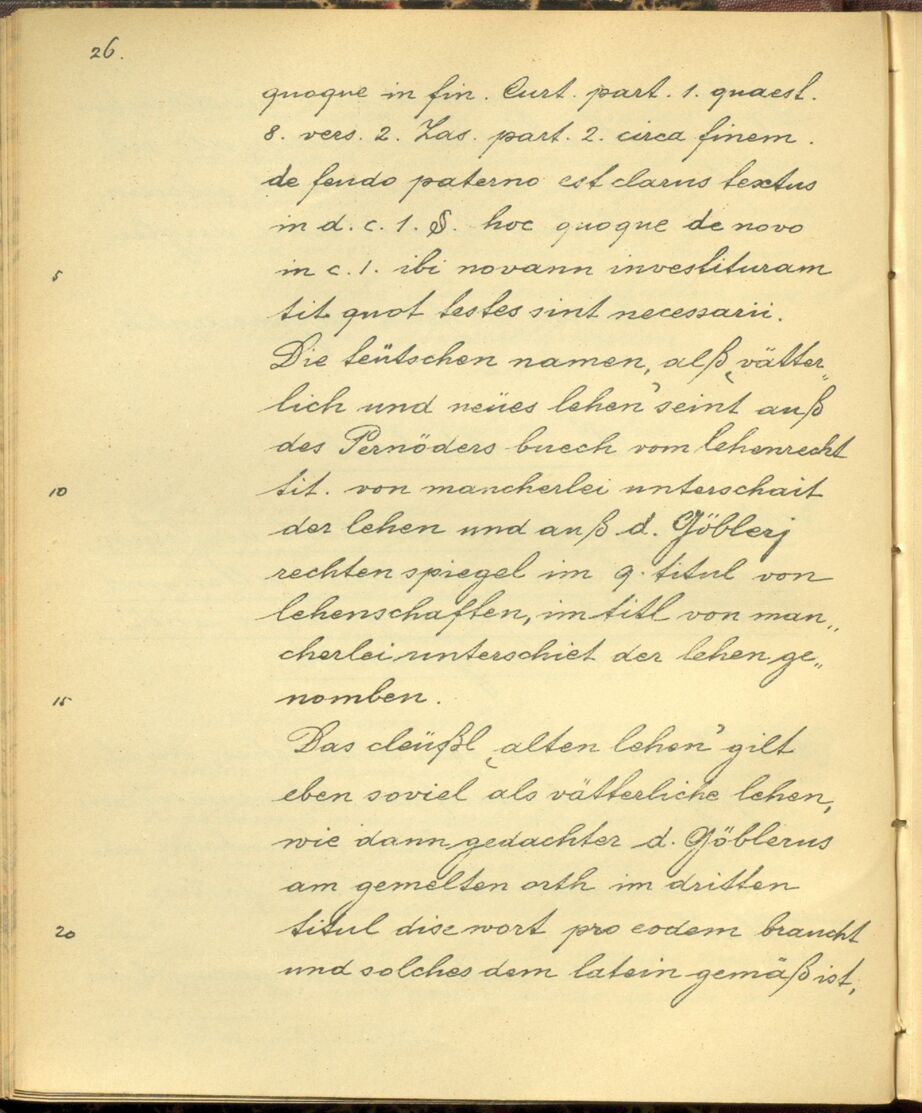 26.
quoque in fin. Curt. part. 1. quaest.
8. vers. 2. Zas. part. 2. circa finem.
de feudo paterno est clarus textus
in d. c. 1. §. hoc quoque de novo
5 in c. 1. ibi novann investituram
tit quot testes sint necessarii.
Die teütschen namen, alß ‚vätter„
lich und neües lehen’ seint auß
des Pernöders buech vom lehenrecht
10 tit. von mancherlei unterschait
der lehen und auß d. Göblerj
rechten spiegel im 9. titul von
lehenschafften, im titl von man„
cherlei unterschiet der lehen ge„
15 nomben.
Das cleüßl ‚alten lehen’ gilt
eben soviel als vätterliche lehen,
wie dann gedachter d. Göblerus
am gemelten orth im dritten
20 titul dise wort pro eodem braucht
und solches dem latein gemäß ist,